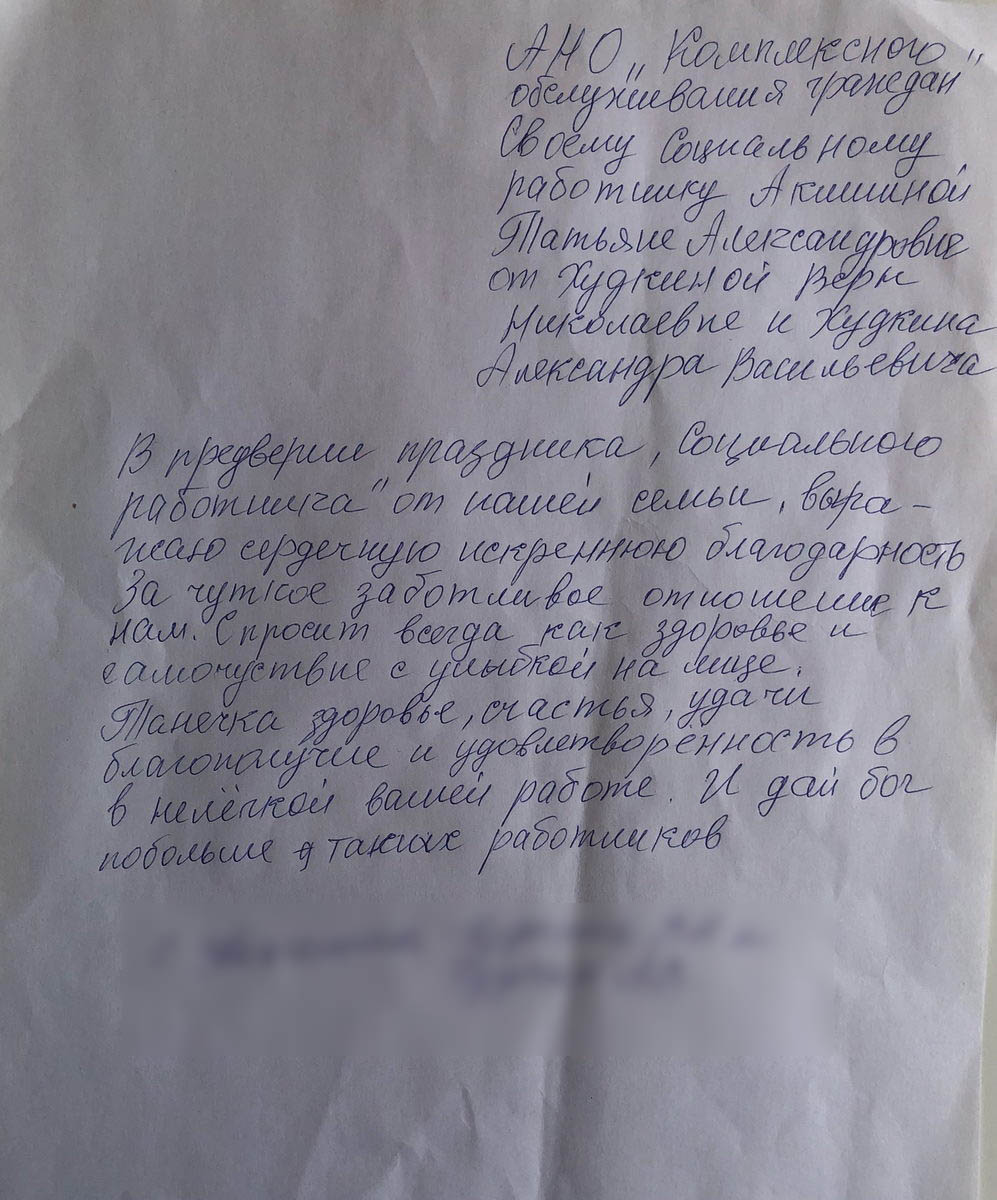 АНО „Комплексного
обслуживания граждан"
Своему Социальному
работнику Акишиной
Татьяне Александровне
от Худкиной Веры
Николаевне и Худкина
Александра Васильевича
В предверии праздника „Социального
работника" от нашей семьи, выра-
жаю сердечную искреннюю благодарность
За чуткое заботливое отношение к
нам. Спросит всегда как здоровье и
самочуствие с улыбкой на лице.
Танечка здоровье, счастья, удачи
благополучие и удовлетворенность в
в нелёгкой вашей работе. И дай бог
побольше таких работников